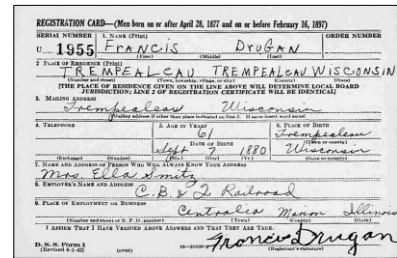 REGISTRATION CARD—(Men born on or after April 28, 1877 and on or before February 16, 1897)
SERIAL NUMBER 1. NAME (Print) ORDER NUMBER
U 1955 FRANCIS DRUGAN
(First) (Middle) (Last)
2. PLACE OF RESIDENCE (Print)
TREMPEALEAU TREMPEALEAU WISCONSIN
(Number and street) (Town, township, village, or city) (County) (State)
[THE PLACE OF RESIDENCE GIVEN ON THE LINE ABOVE WILL DETERMINE LOCAL BOARD
JURISDICTION; LINE 2 OF REGISTRATION CERTIFICATE WILL BE IDENTICAL]
3. MAILING ADDRESS
Trempealeau Wisconsin
[Mailing address if other than place indicated on line 2. If same insert word same]
4. TELEPHONE 5. AGE IN YEARS 6. PLACE OF BIRTH
61 Trempealeau
DATE OF BIRTH (Town or county)
Sept 7 1880 Wisconsin
(Exchange) (Number) (Mo.) (Day) (Yr.) (State or country)
7. NAME AND ADDRESS OF PERSON WHO WILL ALWAYS KNOW YOUR ADDRESS
Mrs. Ella Smitz
8. EMPLOYER'S NAME AND ADDRESS
C.B. & Q Railroad
9. PLACE OF EMPLOYMENT OR BUSINESS
Centralia Marion Illinois
(Number and street or R. F. D. number) (Town) (County) (State)
I AFFIRM THAT I HAVE VERIFIED ABOVE ANSWERS AND THAT THEY ARE TRUE.
D. S. S. Form 1 Francis Drugan
(Revised 4-1-42) (over) (Registrant's signature)